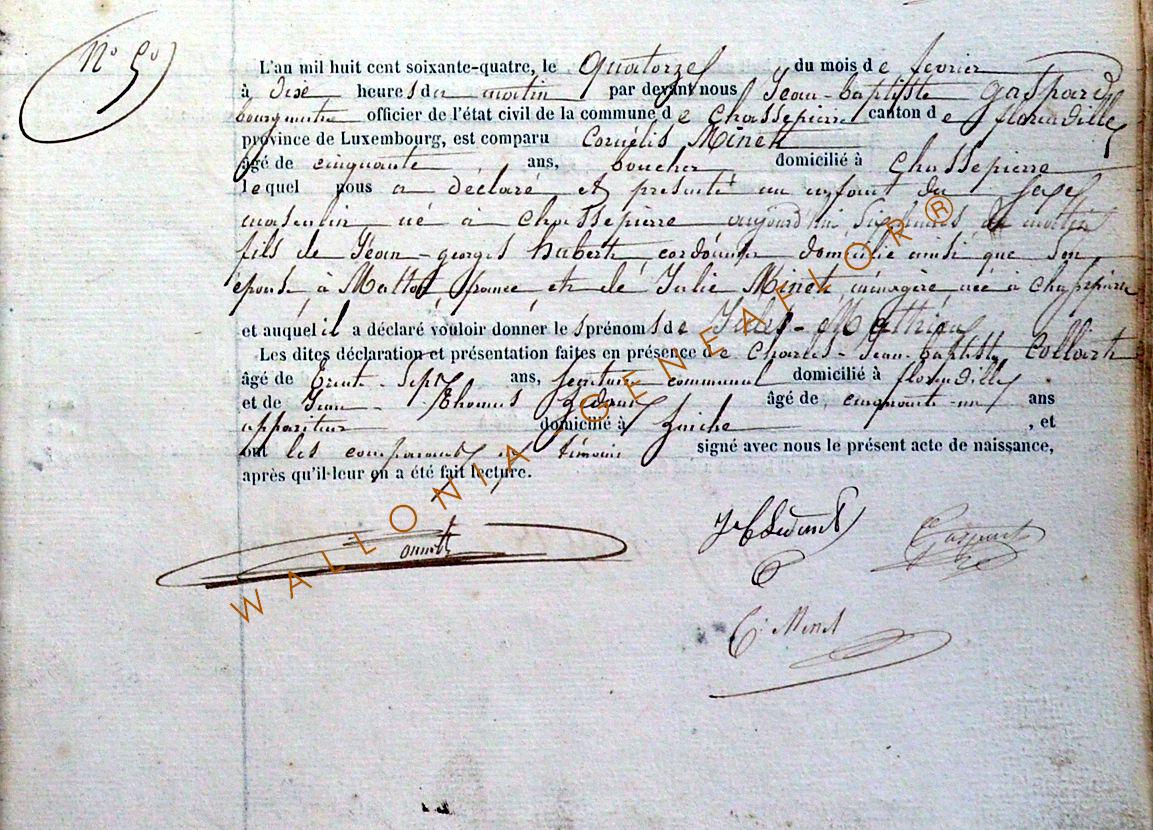 N° 5
L'an mil huit cent soixante-quatre, le quatorze, du mois de fevrier
à dixe heures du matin par devant nous Jean-baptiste gaspard
bourgmestre officier de l'état civil de la commune de Chassepierre canton de florenville
province de Luxembourg, est comparu Cornélis Minet
âgé de cinquante ans, boucher domicilié à Chassepierre
lequel nous a déclaré et presenté un enfant du sexe
masculin né à Chassepierre aujourd'hui, six heures du matin
fils de Jean-georges habert, cordonnier domicilié ainsi que son
épouse à Matton france et de Julie Minet, ménagère née à Chassepierre
et auquel il a déclaré vouloir donner les prénoms de Jules-Mathieu
Les dites déclaration et présentation faites en présence de Charles-Jean-baptiste Collart
âgé de Trente-Sept ans, secretaire communal domicilié à florenville
et de Jean-Thomas âgé de cinquante-un ans
appariteur domicilié à , et
ont les comparants et témoins signé avec nous le présent acte de naissance,
après qu'il leur en a été fait lecture.
C. Minet
WALLONIA-GENEAFLOR®